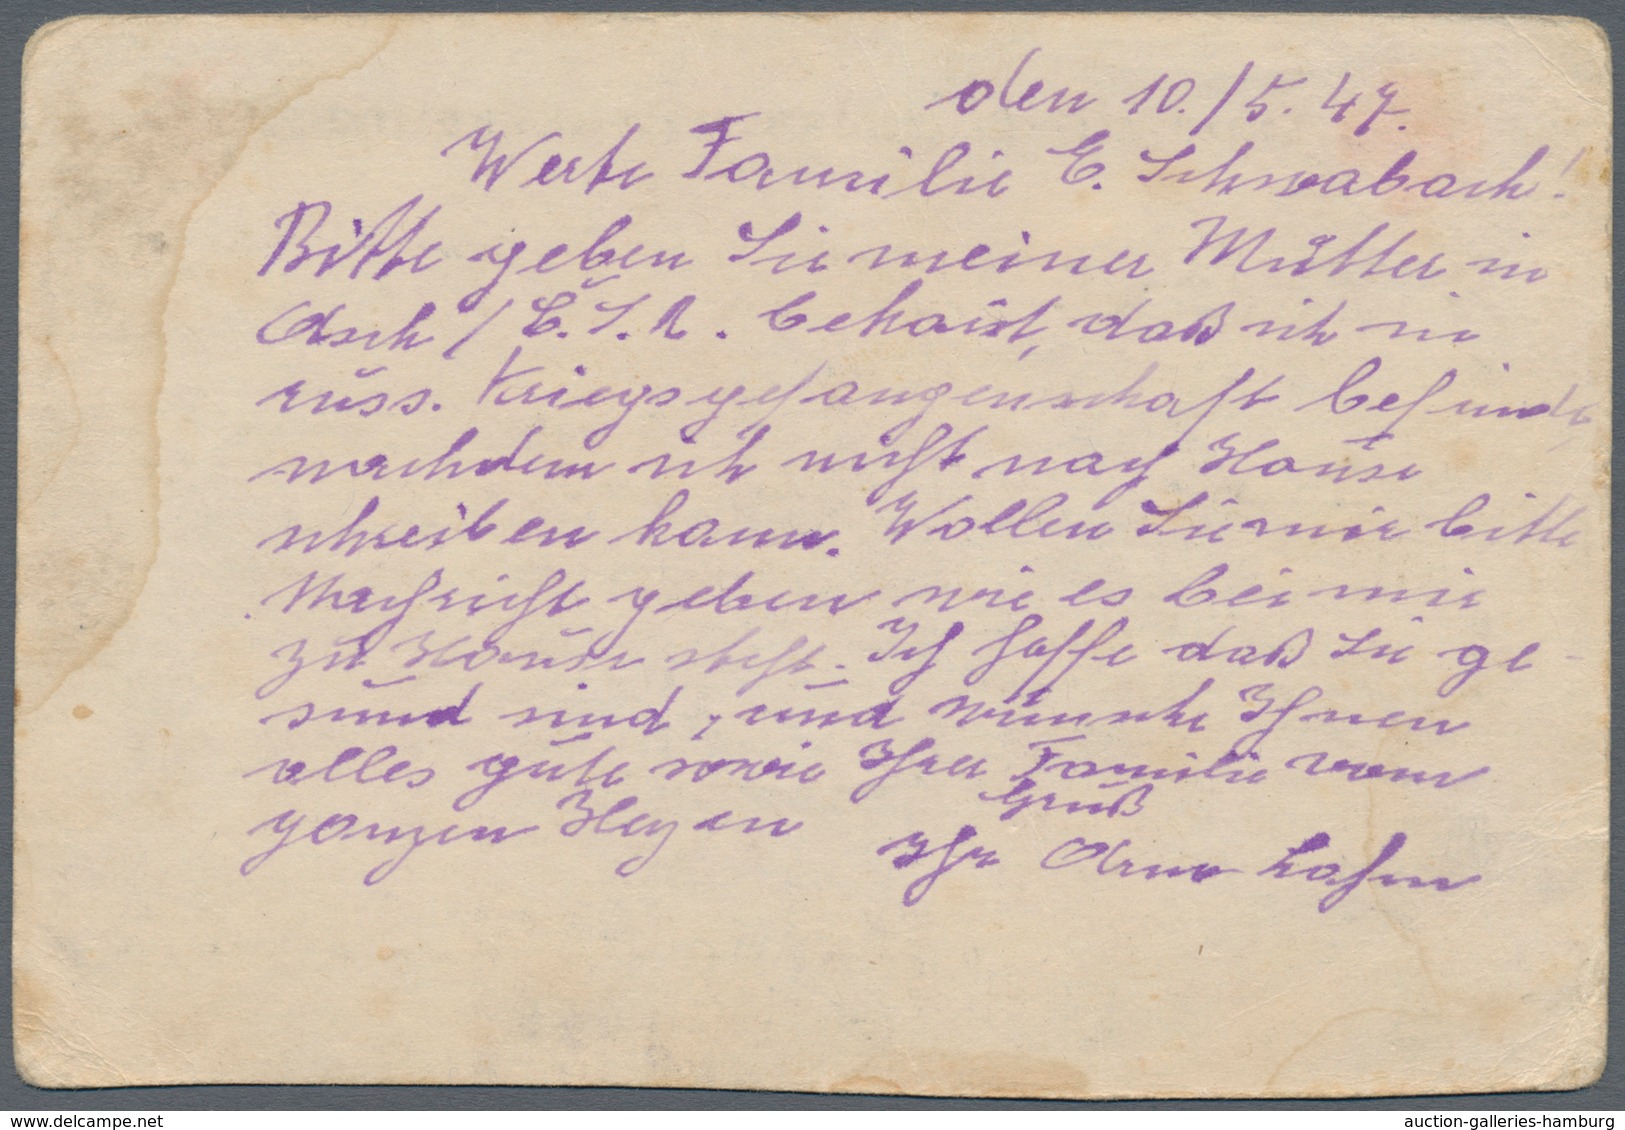 den 10./5. 47.
Werte Familie E. Schwabach!
Bitte geben Sie meiner Mutter in
Asch / Č.S.R. bekannt, daß ich in
russ. Kriegsgefangenschaft befinde,
nachdem ich nicht nach Hause
schreiben kann. Wollen Sie mir bitte
Nachricht geben wie es bei mir
zu Hause steht. Ich hoffe daß Sie ge-
sund sind, und wünsche Ihnen
alles gute sowie Ihrer Familie vom
ganzen Herzen Gruß
Ihr Arno Hahn
delcampe.net
auction-galleries-hamburg